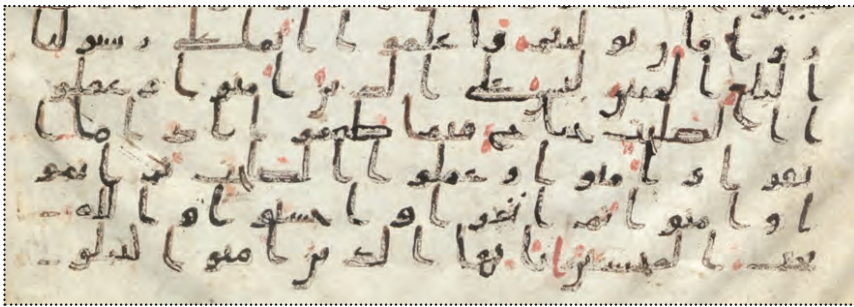 روا فان توليتم فاعلموا انما على رسولنا
البلغ المبين ليس على الذين امنوا وعملو
ا الصلحت جناح فيما طعموا اذا ما ا
تقوا وامنوا وعملوا الصلحت ثم اتقو
ا وامنوا ثم اتقوا واحسنوا والله
يحب المحسنين يايها الذين امنوا ليبلو